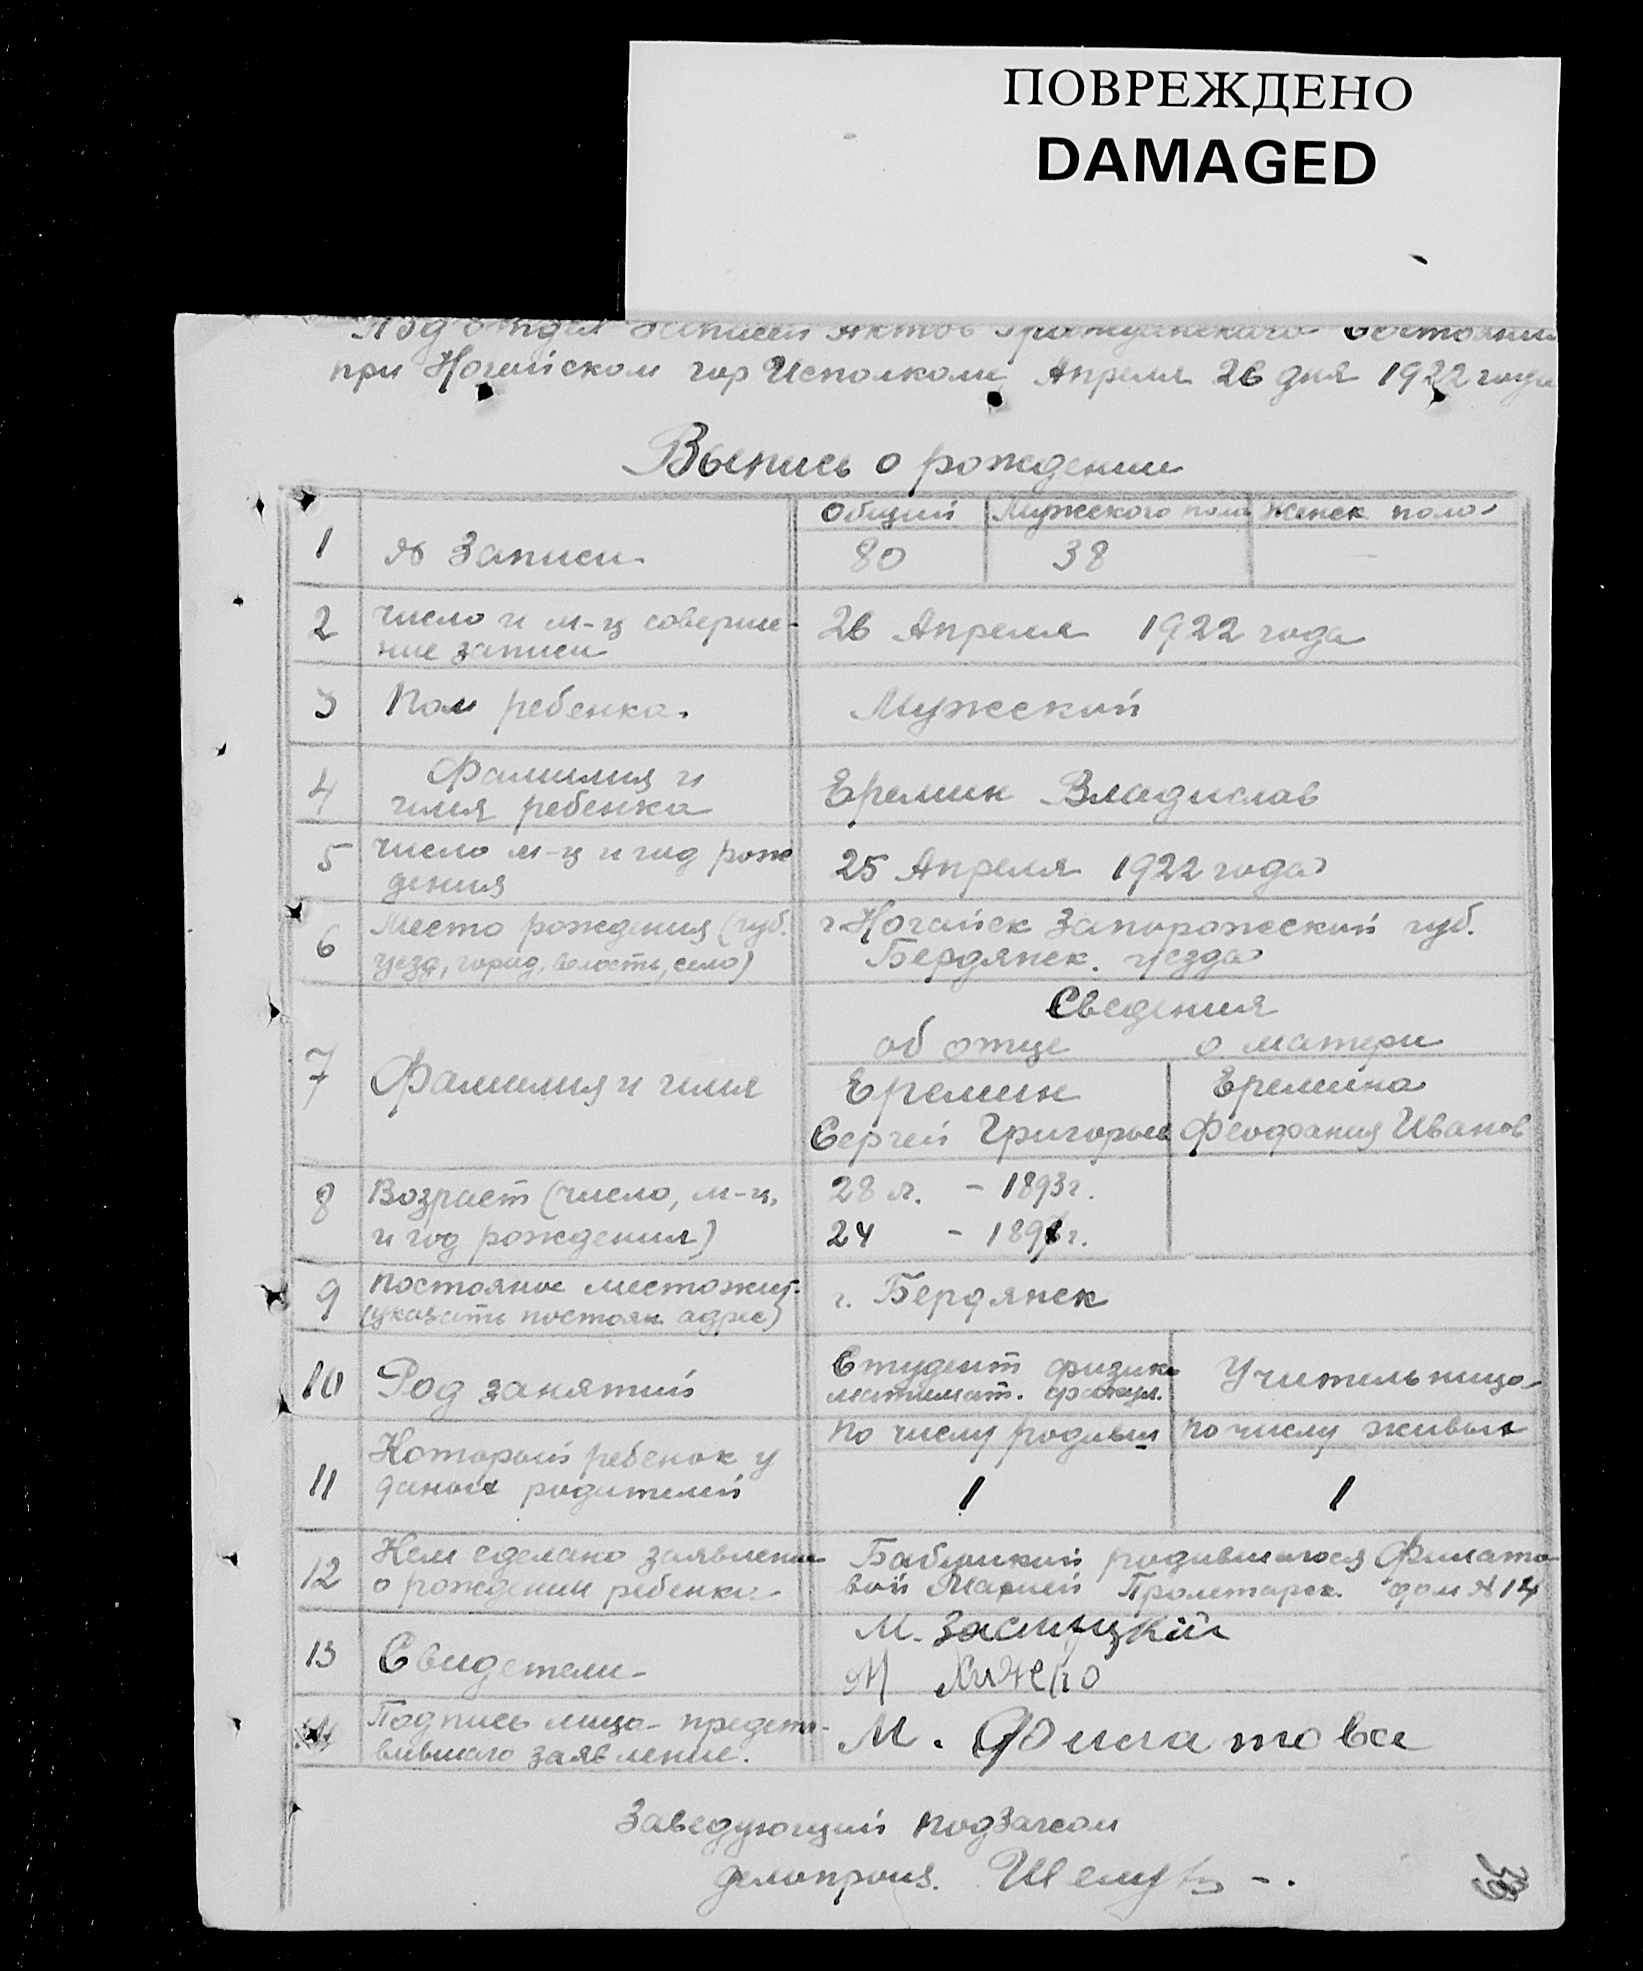 ПОВРЕЖДЕНО
DAMAGED
Подотдел Записей Актов Гражданского Состояния
при Ногайском гор Исполкоме Апреля 26 дня 1922 года
Выпись о рождении
1 № Записи Общий Мужеского пола Женск пола
80 38 —
2 Число и м-ц соверше-
ние записи 26 Апреля 1922 года
3 Пол ребенка. Мужеский
4 Фамилия и
имя ребенка Еремин Владислав
5 Число м-ц и год рож
дения 25 Апреля 1922 года
6 Место рождения (губ.
уезд, город, волость, село) г. Ногайск Запорожеский губ.
Бердянск. уезда
Сведения
об отце о матери
7 Фамилия и имя Еремин Еремина
Сергей Григорьев Феофания Иванов
8 Возраст (число, м-ц, 28 л. - 1893 г.
и год рождения) 24 - 1898 г.
9 Постояное местожит.
(указать постоян. адрес) г. Бердянск
10 Род занятий Студент физико
матимат. факул. Учительница
По числу родивш По числу живых
11 Который ребенок у
даных родителей 1 1
12 Кем сделано заявление
о рождении ребенка Бабушкий родившагося Филато
вой Марией Пролетарск. дом № 14
13 Свидетели М. Заслуцкий
М
14 Подпись лица предста-
вившаго заявление. М. Филатова
Заведующий подЗагсом
делопроиз.